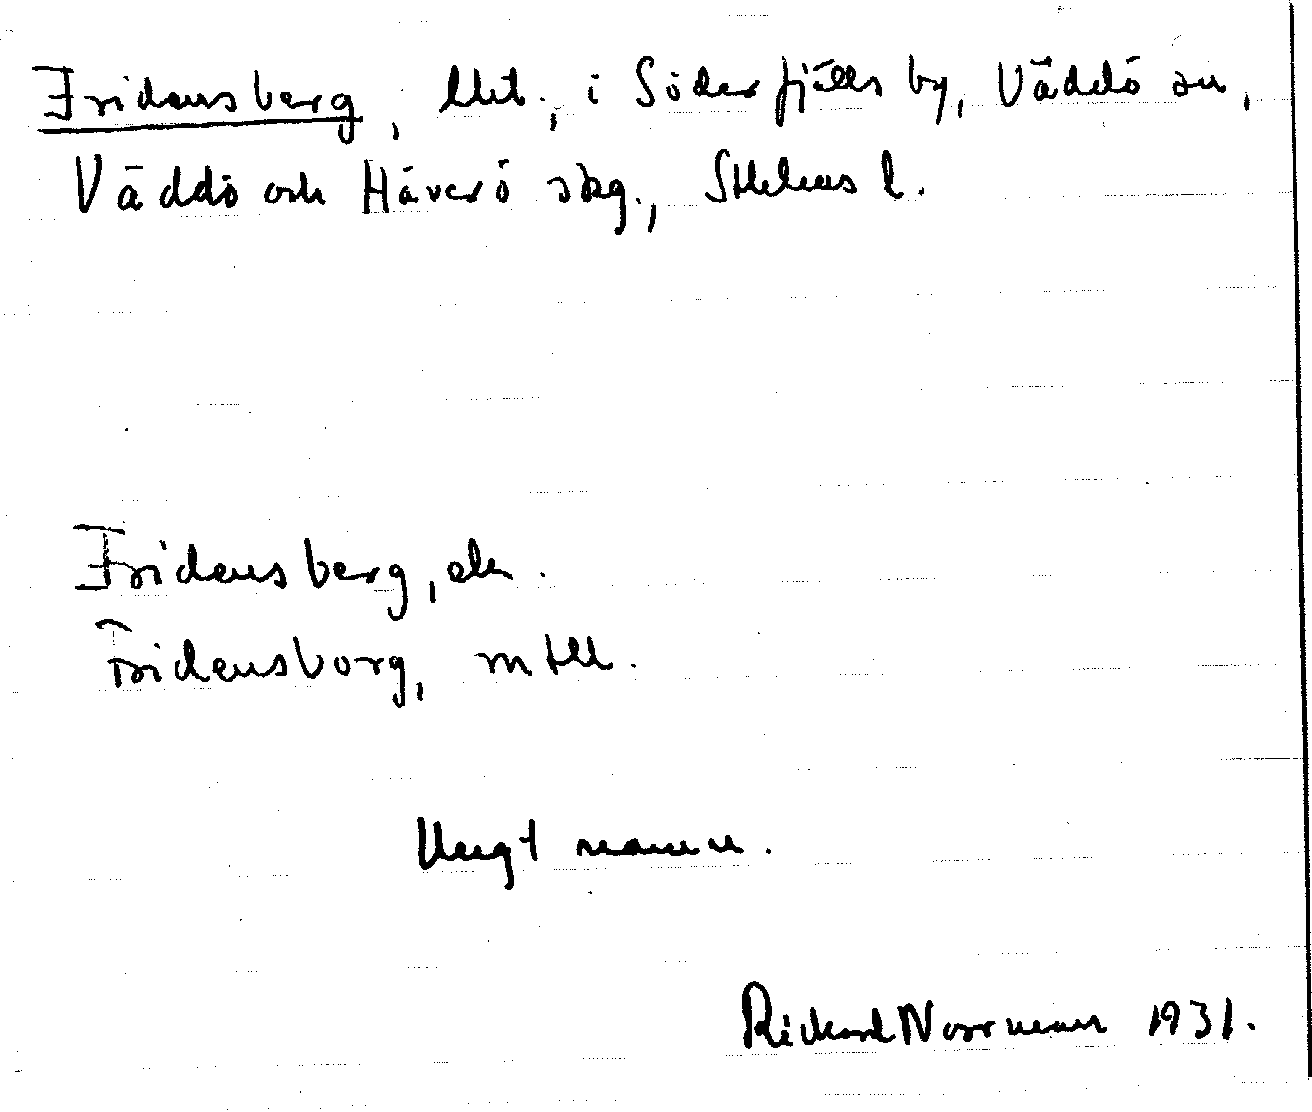 Fridensberg, lht., i Söderfjälls by, Väddö sn,
Väddö och Häverö skg., Sthlms l.
Fridensberg, ek.
Fridensborg, mtll.
Ungt namn.
Rickard Norrman 1931.